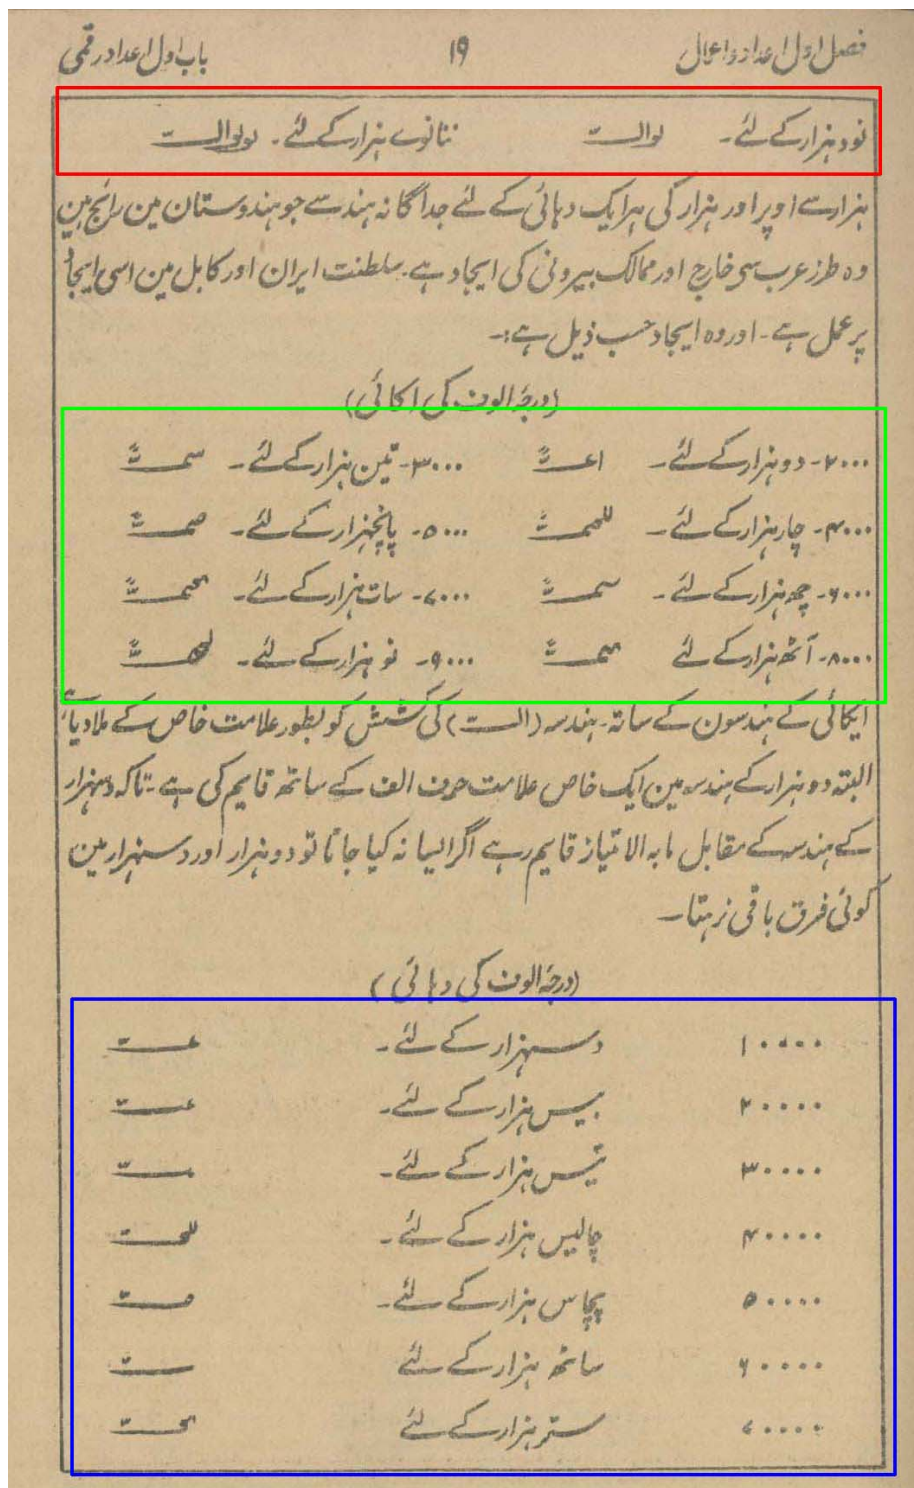 فصل اول اعداد و اعمال ۱۹ باب اول اعداد رقمی
نود ہزار کے لئے۔ لوالت ننانوے ہزار کے لئے۔
ہزار سے اوپر اور ہزار کی ہر ایک دہائی کے لئے جداگانہ ہندسے جو ہندوستان مین رائج ہین
وہ طرز عرب سی خارج اور ممالک بیرونی کی ایجاد ہے۔ سلطنت ایران اور کابل مین اسی ایجاد
پر عمل ہے۔ اور وہ ایجاد حسب ذیل ہے:۔
(درجۂ الوف کی اکائی)
۲۰۰۰۔ دو ہزار کے لئے۔ ۳۰۰۰۔ تین ہزار کے لئے۔
۴۰۰۰۔ چار ہزار کے لئے۔ ۵۰۰۰۔ پانچہزار کے لئے۔
۶۰۰۰۔ چھ ہزار کے لئے۔ ۷۰۰۰۔ سات ہزار کے لئے۔
۸۰۰۰۔ آٹھ ہزار کے لئے ۹۰۰۰۔ نو ہزار کے لئے۔
ایکائی کے ہندسون کے ساتہ۔ ہندسہ (الت) کی کشش کو بطور علامت خاص کے ملادیا
البتہ دو ہزار کے ہندسہ مین ایک خاص علامت حرف الف کے ساتھ قایم کی ہے۔ تاکہ دسہزار
کے ہندسہ کے مقابل مابہ الامتیاز قایم رہے اگر ایسا نہ کیا جاتا تو دو ہزار اور دسہزار مین
کوئی فرق باقی نرہتا۔
(درجۂ الوف کی دہائی)
۱۰۰۰۰ دسہزار کے لئے۔
۲۰۰۰۰ بیس ہزار کے لئے۔
۳۰۰۰۰ تیس ہزار کے لئے۔
۴۰۰۰۰ چالیس ہزار کے لئے۔
۵۰۰۰۰ پچاس ہزار کے لئے۔
۶۰۰۰۰ ساٹھ ہزار کے لئے
۷۰۰۰۰ ستر ہزار کے لئے